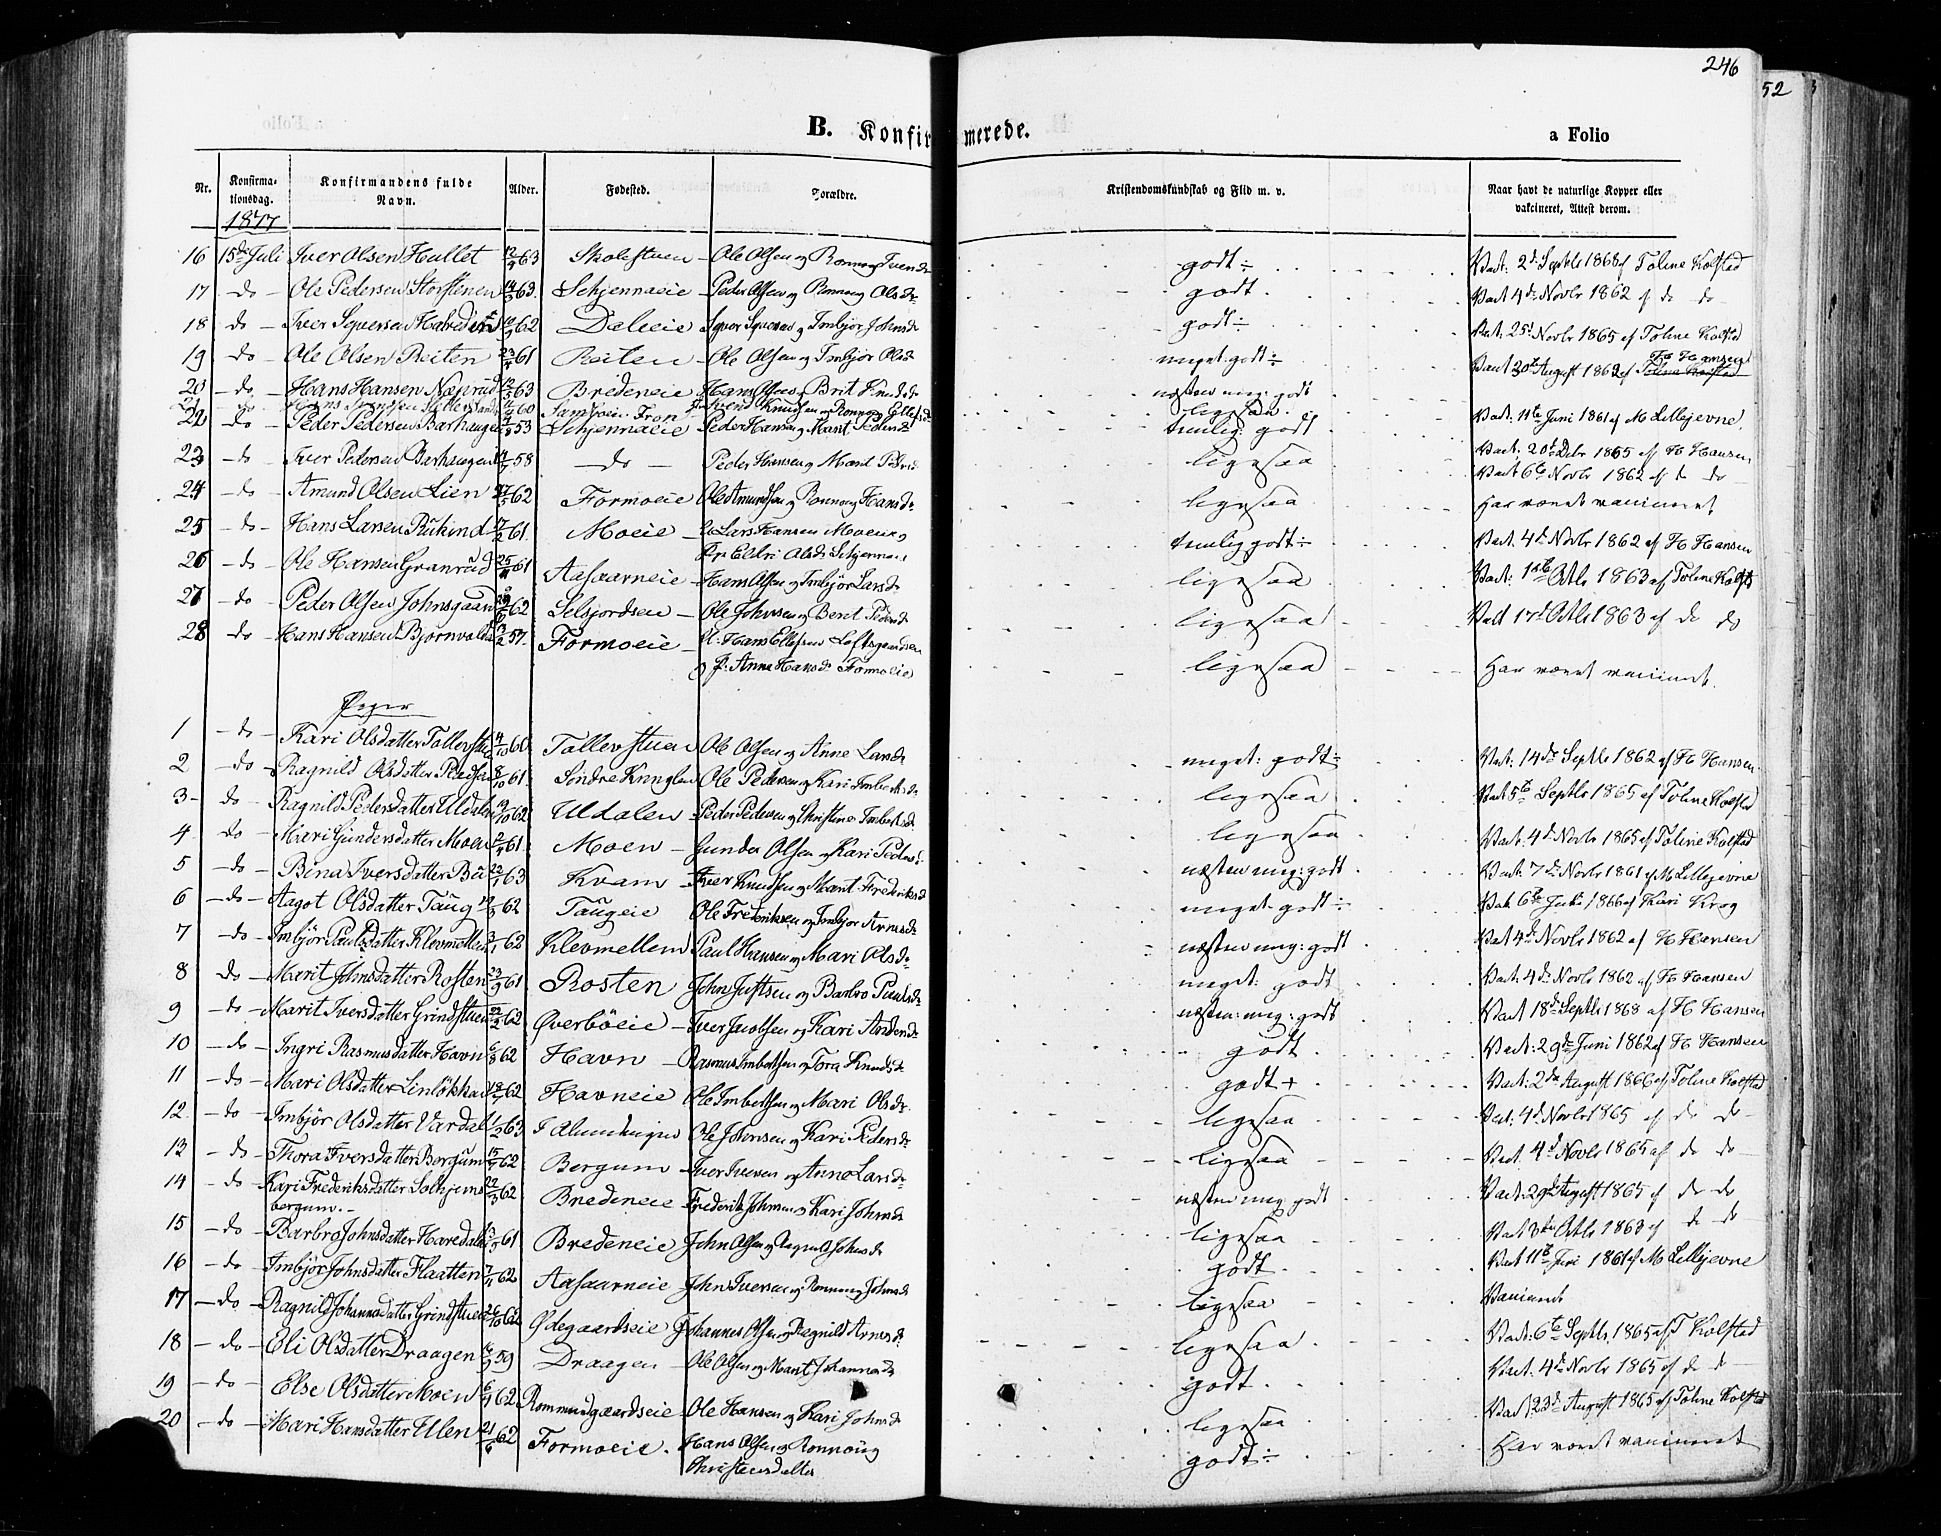 246
52
B. Konfirmerede.
a Folio
Nr. Konfirmationsdag. Konfirmandens fulde Navn. Alder. Fødested. Forældre. Kristendomskundskab og Flid m. v. Naar havt de naturlige Kopper eller vakcineret, Attest derom.
1877
16 15de Juli Iver Olsen Hullet 63 Skolestuen Ole Olsen og godt Vact: 2d Septbr 1868 af Toline Kolstad
17 do Ole Pedersen Storstenen 63 Schjennaeie Peder Olsen og Ronnoug Olsd. godt Vact 4de Novbr 1862 af do do
18 do Iver 62 Daleeie og Imbjør Johnsd godt Vact. 25d Novbr 1865 af Toline Kolstad
19 do Ole Olsen Reiten 61 Reiten Ole Olsen og Imbjør Olsd meget godt Vact 30te August 1862 af H Hansen
20 do Hans Hansen 63 Bredeneie Hans Olsen Brit Knudsd næsten meg: godt
21 do 60 Fron Knudsen og Ronnog ligesaa Vact: 11te Juni 1861 af M Lillejevne
22 do Peder Pedersen Barhaugen 53 Schjennaeie Peder Hansen og Marit Pedersd temlig godt Vact: 20de 1865 af H Hansen
23 do Iver Pedersen Barhaugen 58 do Peder Hansen og Marit Pedersd ligesaa Vact 6te Novbr 1862 af do do
24 do Amund Olsen Lien 62 Formoeie Ole Amundsen og Ronnoug Hansd. ligesaa Har været vaccineret
25 do Hans Larsen 61 Moeie Lars Hansen Moeie og Olsd. temlig godt Vact. 4de Novbr 1862 af H Hansen
26 do Ole Hansen Granrud 25/11 61 Aasaarneie Hans Olsen og Imbjør Larsd ligesaa Vact: 1ste Octbr 1863 af Toline Kolstad
27 do Peder Olsen Johnsgaard 62 Selsjordseie Ole Johnsen og Berit Pedersd ligesaa Vact 17d Octbr 1863 af do do
28 do Hans Hansen Bjørnvold 57 Formoeie Hans Ellefsen
og P. Anne Hansd. Formoeie ligesaa Har været vaccineret.
Piger
1 do Kari Olsdatter Tollevstuen 4/10 60 Tollevstuen Ole Olsen og Anne Larsd meget: godt Vact: 14de Septbr 1862 af H Hansen
2 do Ragnild Olsdatter 8/10 61 Søndre Kringlen Ole Pedersen og Kari Imbertsd ligesaa Vact 5te Septbr 1865 af Toline Kolstad
3 do Ragnild Pedersdatter Uldalen 62 Uldalen Peder Pedersen og Christine Imbertsd. ligesaa Vact. 4de Novbr 1865 af Toline Kolstad
4 do Mari Gundersdatter Moen 61 Moen Gunder Olsen og Kari Pedersd. næsten meg: godt Vact. 7de Novbr 1861 af M Lillejevne
5 do Bina Iversdatter Bu 22/1 63 Kvam Iver Knudsen og Marit Frederiksd meget godt Vact 6te Juli 1866 af Kari Krog
6 do Aagot Olsdatter Taug 62 Taugeie Ole Frederiksen og Imbjør Arnesd. næsten meg: godt Vact 4de Novbr 1862 af H Hansen
7 do Imbjør Paulsdatter Klevmellem 3/1 62 Klevmellem Paul Hansen og Mari Olsd. meget: godt Vact. 4de Novbr 1862 af H Hansen
8 do Marit Johnsdatter Rosten 23/9 61 Rosten John Justsen og Barbro Paulsd næsten: meg: godt Vact 18de Septbr 1868 af H Hansen
9 do Marit Iversdatter Grindstuen 22/2 62 Øverbøeie Iver Jacobsen og Kari Andersd godt Vact: 29de Juni 1862 af H Hansen
10 do Ingri Rasmusdatter Havn 6/8 62 Havn Rasmus Imbertsen og Tora Knudsd godt + Vact: 2den August 1866 af Toline Kolstad
11 do Mari Olsdatter Linløkken 62 Havneie Ole Imbertsen og Mari Olsd. ligesaa Vact. 4de Novbr 1865 af do do
12 do Imbjør Olsdatter Vardal 1/2 63 Ole Johnsen og Kari Pedersd ligesaa Vact. 4de Novbr 1865 af do do
13 do Thora Iversdatter Bergum 62 Bergum Iver Iversen og Anne Larsd. næsten meg godt Vact. 29de August 1865 af do do
14 do Kari Frederiksdatter Solhjems 22/3 62 Bredeneie Frederik Johnsen og Kari Johnsd ligesaa Vact 3die Octbr 1863 af do do
bergum.
15 do Barbro Johnsdatter 61 Bredeneie John Olsen og Ragnild Johnsd godt Vact 11te Juni 1861 af M Lillejevne
16 do Imbjør Johnsdatter Flaatten 7/11 62 Aasaarneie John Iversen og Ronnaug Johnsd ligesaa Vaccineret
17 do Ragnild Johannesdatter Grindstuen 26/10 62 Ødegaardseie Johannes Olsen og Ragnild Arnesd. ligesaa Vact: 6te Septbr. 1865 af T Kolstad
18 do Eli Olsdatter Draagen 59 Draagen Ole Olsen og Marit Johannesd. godt Vact. 4de Novbr 1865 af do do
19 do Else Olsdatter Moen 62 Rommundgaardseie Ole Hansen og Kari Johnsd ligesaa Vact. 23de August 1865 af Toline Kolstad
20 do Mari Hansdatter Ulen 21/6 62 Formoeie. Hans Olsen og Ronnoug godt Har været vaccineret
Christensdatter